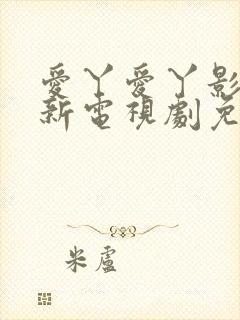 愛丫愛丫影
新電視劇免
米盧